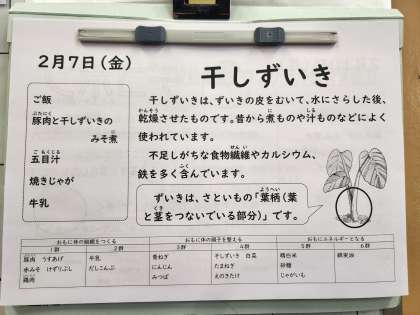 2月7日(金)
干しずいき
ご飯
豚肉と干しずいきの
みそ煮
五目汁
焼きじゃが
牛乳
干しずいきは、ずいきの皮をむいて、水にさらした後、
乾燥させたものです。昔から煮ものや汁ものなどによく
使われています。
不足しがちな食物繊維やカルシウム、
鉄を多く含んでいます。
ずいきは、さといもの「葉柄(葉
と茎をつないでいる部分)」です。
おもに体の組織をつくる
おもに体の調子を整える
おもにエネルギーとなる
1群 2群 3群 4群 5群 6群
豚肉 うすあげ 牛乳 青ねぎ 干しずいき 白菜 精白米
赤みそ けずりぶし だしこんぶ にんじん たまねぎ 砂糖
鶏肉 みつば えのきたけ じゃがいも